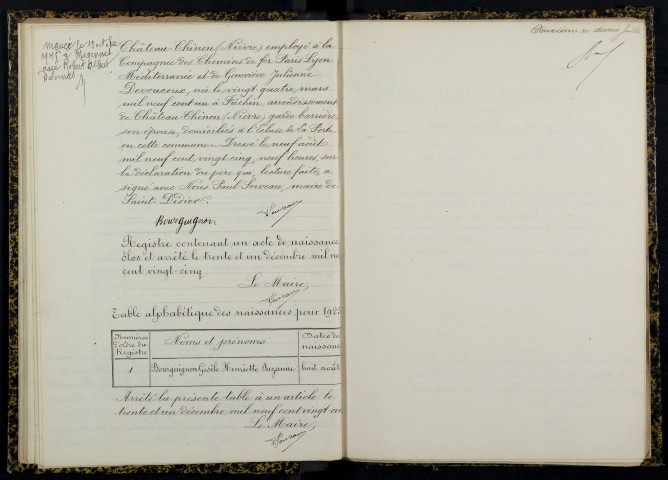 Marié le 13 octobre
à
avec Robert Albert
Château-Chinon (Nièvre) employé à la
Compagnie des Chemins de fer Paris Lyon
Méditerranée et de Geneviève Julienne
Devoucoux, née le vingt quatre, mars
mil neuf cent un à Fâchin, arrondissement
de Château-Chinon (Nièvre) garde barrière
son épouse, domiciliés à l'écluse de La Forêt
en cette commune. Dressé le neuf août
mil neuf cent, vingt-cinq, neuf heures, sur
la déclaration du père qui, lecture faite, a
signé avec Nous Paul Serveau, maire de
Saint-Didier.
Bourguignon
Registre contenant un acte de naissance
clos et arrêté le trente et un décembre mil ne
cent vingt-cinq
Le Maire,
Table alphabétique des naissances pour 1925
Numéros d'ordre du Registre
Noms et prénoms
Dates des naissanc
1
Bourguignon Gisèle Henriette Suzanne
huit août
Arrêté la présente table à un article le
trente et un décembre, mil neuf cent vingt-cin
Le Maire,
Douzième et dernier feuillet